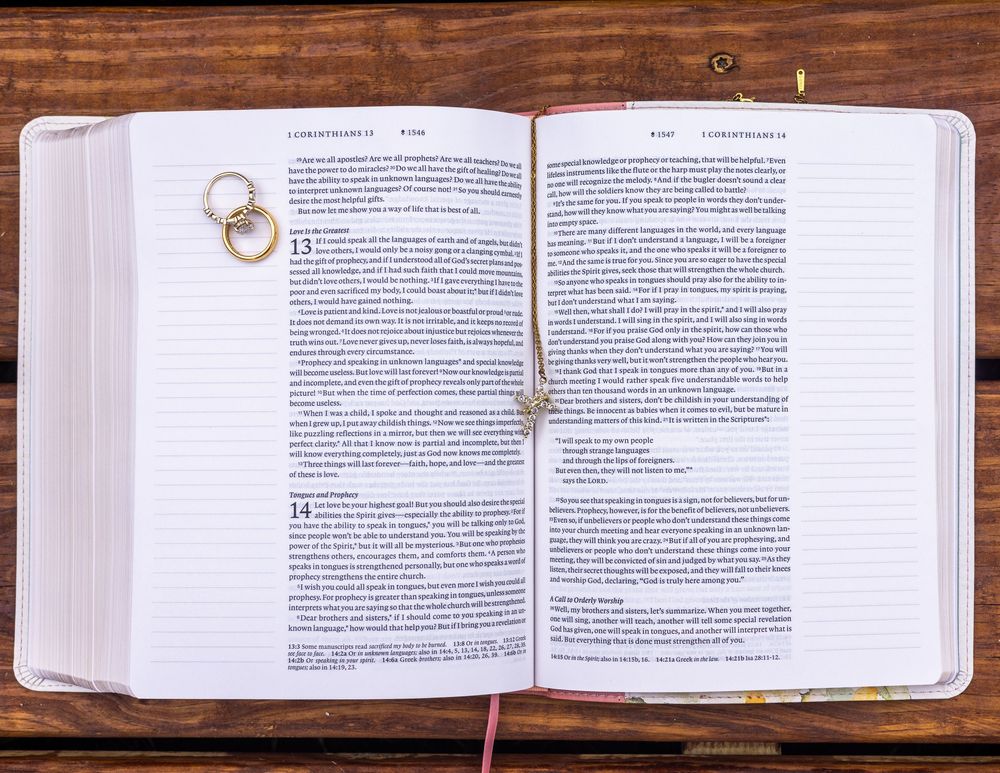 1 CORINTHIANS 13
1546
29Are we all apostles? Are we all prophets? Are we all teachers? Do we all
have the power to do miracles? 30Do we all have the gift of healing? Do we all
have the ability to speak in unknown languages? Do we all have the ability
to interpret unknown languages? Of course not! 31So you should earnestly
desire the most helpful gifts.
But now let me show you a way of life that is best of all.
Love Is the Greatest
13 If I could speak all the languages of earth and of angels, but didn't
love others, I would only be a noisy gong or a clanging cymbal. 2If I
had the gift of prophecy, and if I understood all of God's secret plans and pos-
sessed all knowledge, and if I had such faith that I could move mountains,
but didn't love others, I would be nothing. 3If I gave everything I have to the
poor and even sacrificed my body, I could boast about it;* but if I didn't love
others, I would have gained nothing.
4Love is patient and kind. Love is not jealous or boastful or proud 5or rude.
It does not demand its own way. It is not irritable, and it keeps no record of
being wronged. 6It does not rejoice about injustice but rejoices whenever the
truth wins out. 7Love never gives up, never loses faith, is always hopeful, and
endures through every circumstance.
8Prophecy and speaking in unknown languages* and special knowledge
will become useless. But love will last forever! 9Now our knowledge is partial
and incomplete, and even the gift of prophecy reveals only part of the whole
picture! 10But when the time of perfection comes, these partial things
become useless.
11When I was a child, I spoke and thought and reasoned as a child. But
when I grew up, I put away childish things. 12Now we see things imperfectly,
like puzzling reflections in a mirror, but then we will see everything with
perfect clarity.* All that I know now is partial and incomplete, but then I
will know everything completely, just as God now knows me completely.
13Three things will last forever—faith, hope, and love—and the greatest
of these is love.
Tongues and Prophecy
14 Let love be your highest goal! But you should also desire the special
abilities the Spirit gives—especially the ability to prophesy. 2For if
you have the ability to speak in tongues,* you will be talking only to God,
since people won't be able to understand you. You will be speaking by the
power of the Spirit,* but it will all be mysterious. 3But one who prophesies
strengthens others, encourages them, and comforts them. 4A person who
speaks in tongues is strengthened personally, but one who speaks a word of
prophecy strengthens the entire church.
5I wish you could all speak in tongues, but even more I wish you could all
prophesy. For prophecy is greater than speaking in tongues, unless someone
interprets what you are saying so that the whole church will be strengthened.
6Dear brothers and sisters,* if I should come to you speaking in an un-
known language,* how would that help you? But if I bring you a revelation or
13:3 Some manuscripts read sacrificed my body to be burned. 13:8 Or in tongues. 13:12 Greek
see face to face. 14:2a Or in unknown languages; also in 14:4, 5, 13, 14, 18, 22, 26, 27, 28, 39.
14:2b Or speaking in your spirit. 14:6a Greek brothers; also in 14:20, 26, 39. 14:6b Or in
tongues; also in 14:19, 23.
1547
1 CORINTHIANS 14
some special knowledge or prophecy or teaching, that will be helpful. 7Even
lifeless instruments like the flute or the harp must play the notes clearly, or
no one will recognize the melody. 8And if the bugler doesn't sound a clear
call, how will the soldiers know they are being called to battle?
9It's the same for you. If you speak to people in words they don't under-
stand, how will they know what you are saying? You might as well be talking
into empty space.
10There are many different languages in the world, and every language
has meaning. 11But if I don't understand a language, I will be a foreigner
to someone who speaks it, and the one who speaks it will be a foreigner to
me. 12And the same is true for you. Since you are so eager to have the special
abilities the Spirit gives, seek those that will strengthen the whole church.
13So anyone who speaks in tongues should pray also for the ability to in-
terpret what has been said. 14For if I pray in tongues, my spirit is praying,
but I don't understand what I am saying.
15Well then, what shall I do? I will pray in the spirit,* and I will also pray
in words I understand. I will sing in the spirit, and I will also sing in words
I understand. 16For if you praise God only in the spirit, how can those who
don't understand you praise God along with you? How can they join you in
giving thanks when they don't understand what you are saying? 17You will
be giving thanks very well, but it won't strengthen the people who hear you.
18I thank God that I speak in tongues more than any of you. 19But in a
church meeting I would rather speak five understandable words to help
others than ten thousand words in an unknown language.
20Dear brothers and sisters, don't be childish in your understanding of
these things. Be innocent as babies when it comes to evil, but be mature in
understanding matters of this kind. 21It is written in the Scriptures*:
"I will speak to my own people
through strange languages
and through the lips of foreigners.
But even then, they will not listen to me,"*
says the LORD.
22So you see that speaking in tongues is a sign, not for believers, but for un-
believers. Prophecy, however, is for the benefit of believers, not unbelievers.
23Even so, if unbelievers or people who don't understand these things come
into your church meeting and hear everyone speaking in an unknown lan-
guage, they will think you are crazy. 24But if all of you are prophesying, and
unbelievers or people who don't understand these things come into your
meeting, they will be convicted of sin and judged by what you say. 25As they
listen, their secret thoughts will be exposed, and they will fall to their knees
and worship God, declaring, "God is truly here among you."
A Call to Orderly Worship
26Well, my brothers and sisters, let's summarize. When you meet together,
one will sing, another will teach, another will tell some special revelation
God has given, one will speak in tongues, and another will interpret what is
said. But everything that is done must strengthen all of you.
14:15 Or in the Spirit; also in 14:15b, 16. 14:21a Greek in the law. 14:21b Isa 28:11-12.